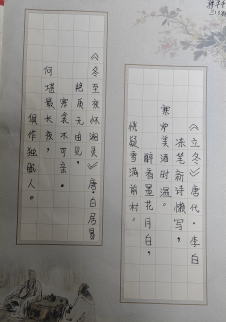 《立冬》唐代·李白
冻笔新诗懒写,
寒炉美酒时温。
醉看墨花月白,
恍疑雪满前村。
《冬至夜怀湘灵》唐·白居易
艳质无由见,
寒衾不可亲。
何堪最长夜,
俱作独眠人。